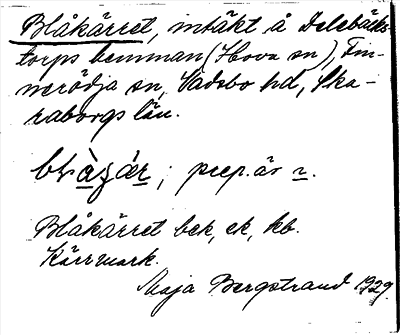 Blåkärret, intäkt å Delebäcks-
torps hemman (Hova sn), Fin-
nerödja sn, Vadsbo hd, Ska-
raborgs län.
prep. är
Blåkärret bek, ek, kb.
Kärrmark.
Maja Bergstrand 1929.